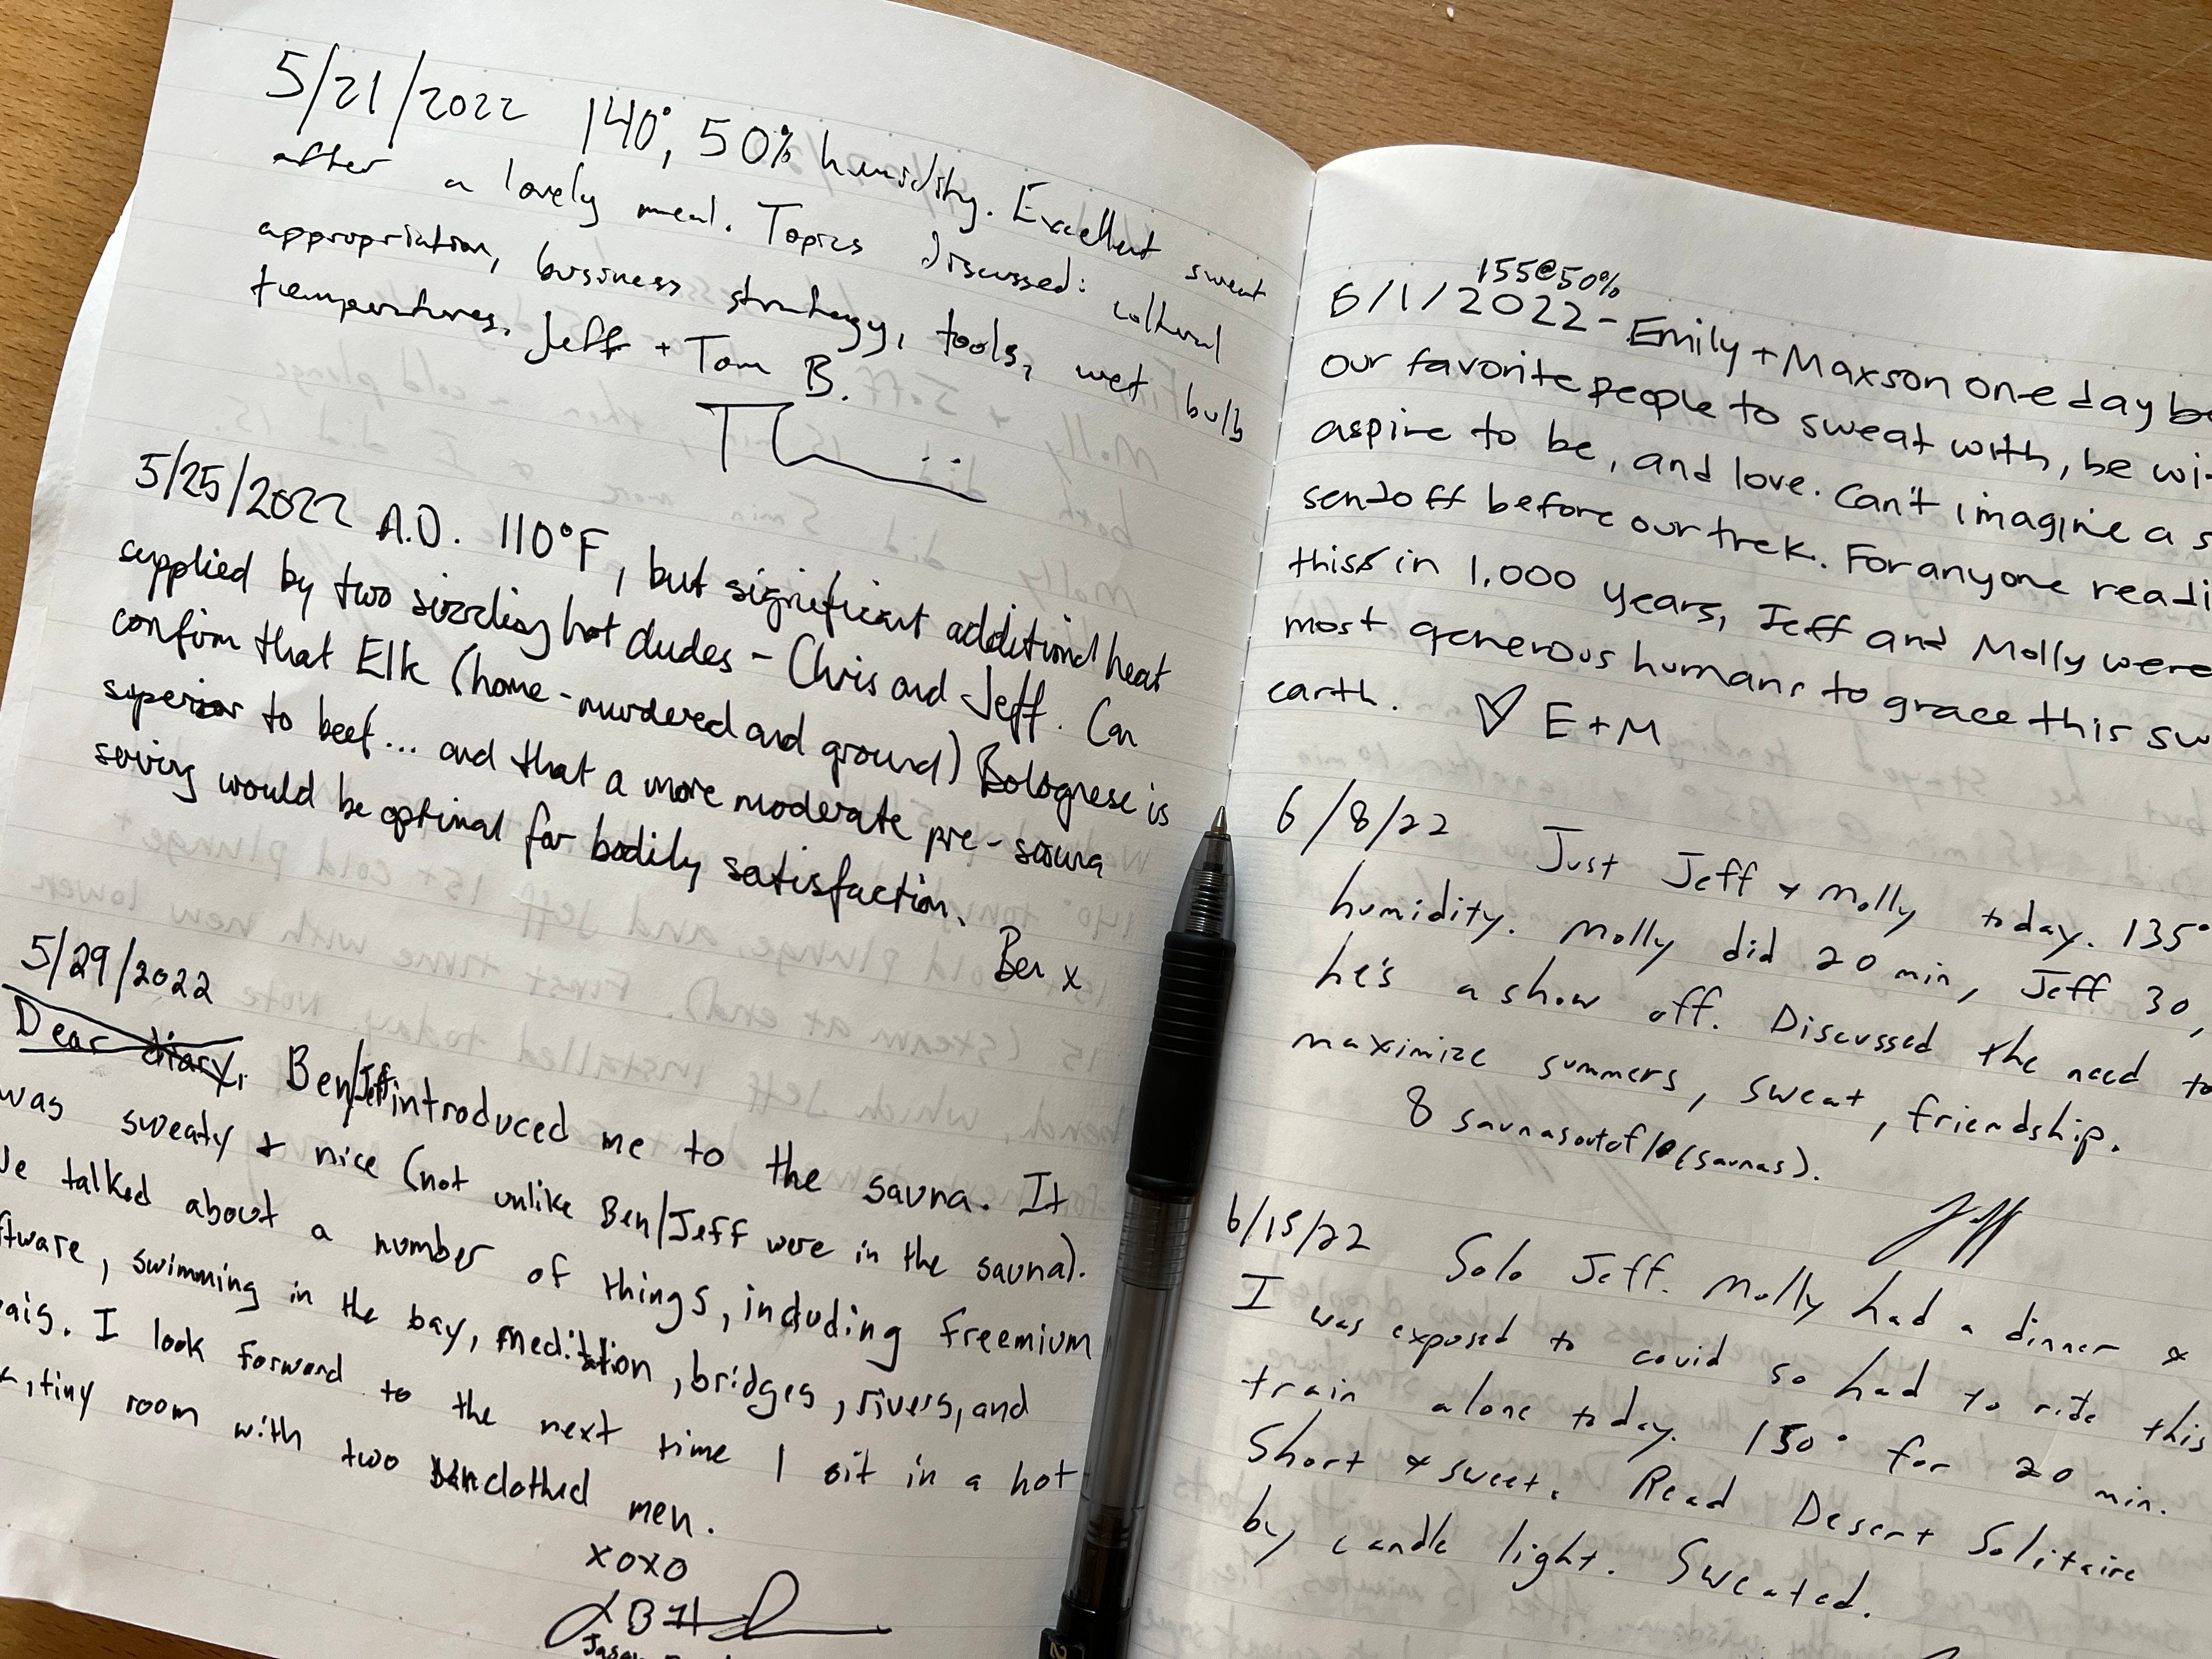 5/21/2022 140°, 50% humidity. Excellent sweat
after a lovely meal. Topics discussed: cultural
appropriation, business strategy, tools, wet bulb
temperatures. Jeff + Tom B.
5/25/2022 A.D. 110°F, but significant additional heat
supplied by two sizzling hot dudes - Chris and Jeff. Can
confirm that Elk (home-murdered and ground) Bolognese is
superior to beef... and that a more moderate pre-sauna
serving would be optimal for bodily satisfaction.
Ben x
5/29/2022
Dear diary, Ben/Jeff introduced me to the sauna. It
was sweaty & nice (not unlike Ben/Jeff were in the sauna).
We talked about a number of things, including freemium
ftware, swimming in the bay, meditation, bridges, rivers, and
ais. I look forward to the next time I sit in a hot
, tiny room with two unclothed men.
xoxo
155@50%
6/1/2022 - Emily + Maxson one day be
our favorite people to sweat with, be wi
aspire to be, and love. Can't imagine a s
sendoff before our trek. For anyone readi
this in 1,000 years, Jeff and Molly were
most generous humans to grace this sw
earth. ♡ E + M
6/8/22 Just Jeff & Molly today. 135°
humidity. Molly did 20 min, Jeff 30,
he's a show off. Discussed the need to
maximize summers, sweat, friendship.
8 saunas out of 10 (saunas).
Jeff
6/15/22 Solo Jeff. Molly had a dinner &
I was exposed to covid so had to ride this
train alone today. 150° for 20 min.
Short & sweet. Read Desert Solitaire
by candle light. Sweated.